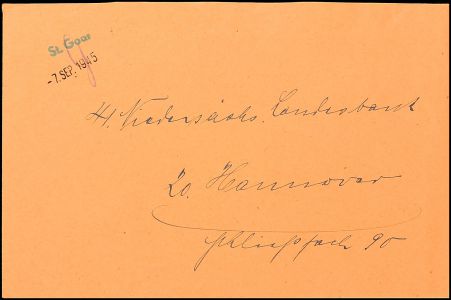 St. Goar
-7. SEP. 1945
Niedersächs. Landesbank
20. Hannover
Schließfach 90